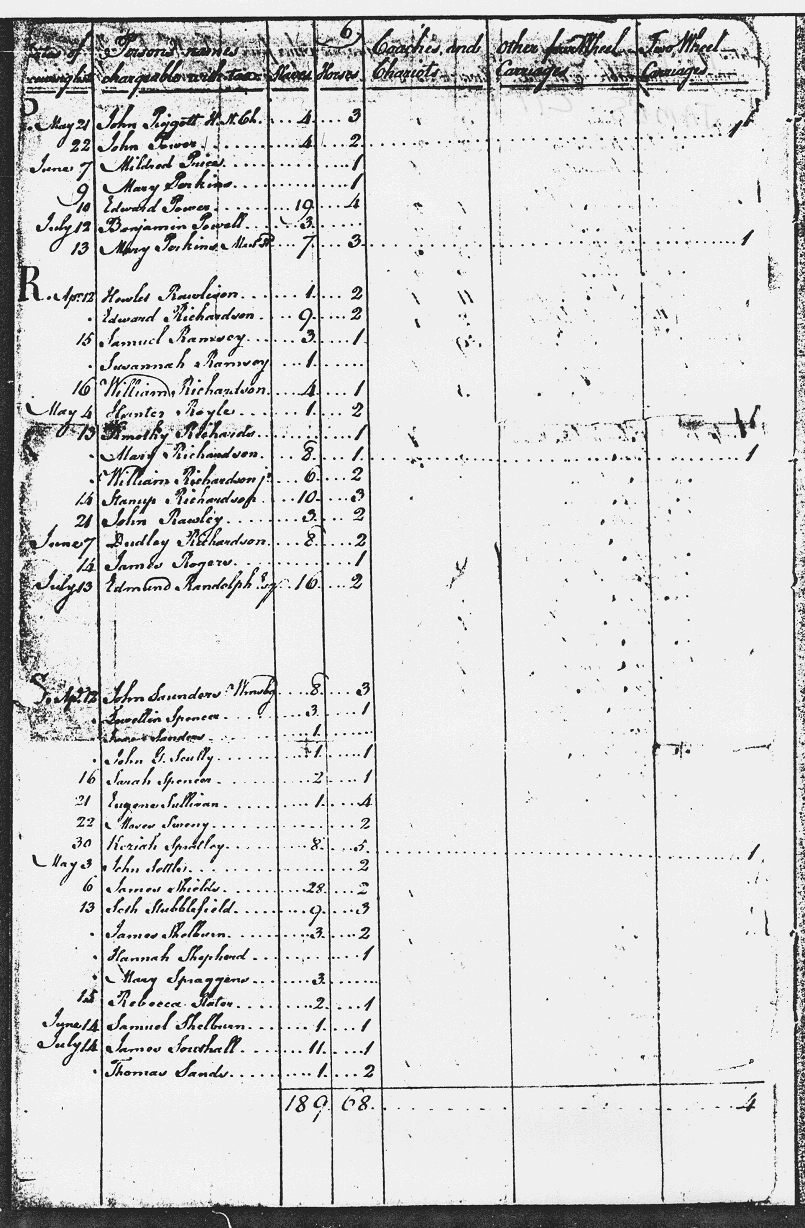 6
Dates of Persons names Slaves Horses Coaches and other four Wheel Two Wheel
receiving list chargeable with tax Chariots Carriages Carriages
P. May 21 John Piggott 4 3 1
22 John Power 4 2
June 7 Mildred Price 1
9 Mary Perkins 1
10 Edward Power 19 4
July 12 Benjamin Powell 3
13 Mary Perkins 7 3 1
R. Apr. 12 Howles Rawlison 1 2
Edward Richardson 9 2
15 Samuel Ramsey 3 1
Susannah Ramsey 1
16 William Richardson 4 1
May 4 Hunter Royle 1 2
13 Timothy Richards 1
Mary Richardson 8 1 1
William Richardson jr. 6 2
14 Stanup Richardson 10 3
21 John Rawley 3 2
June 7 Dudley Richardson 8 2
14 James Rogers 1
July 13 Edmund Randolph Esq 16 2
S. Apr. 12 John Saunders Wmsbg 8 3
Lewellin Spencer 3 1
Sanders 1
John G. Scully 1 1
16 Sarah Spencer 2 1
21 Eugene Sullivan 1 4
22 Moses Sweny 2
30 Keziah Spratley 8 5 1
May 3 John Settle 2
6 James Shields 28 2
13 Seth Stubblefield 9 3
James Shelburn 3 2
Hannah Shepherd 1
Mary Spraggens 3
15 Rebecca Slater 2 1
June 14 Samuel Shelburn 1 1
July 14 James Southall 11 1
Thomas Sands 1 2
189 68 4